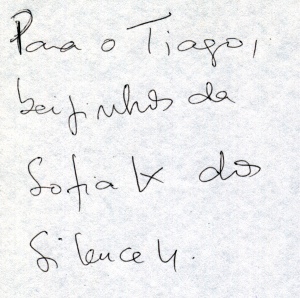 Para o Tiago,
beijinhos da
Sofia K dos
Silence 4.